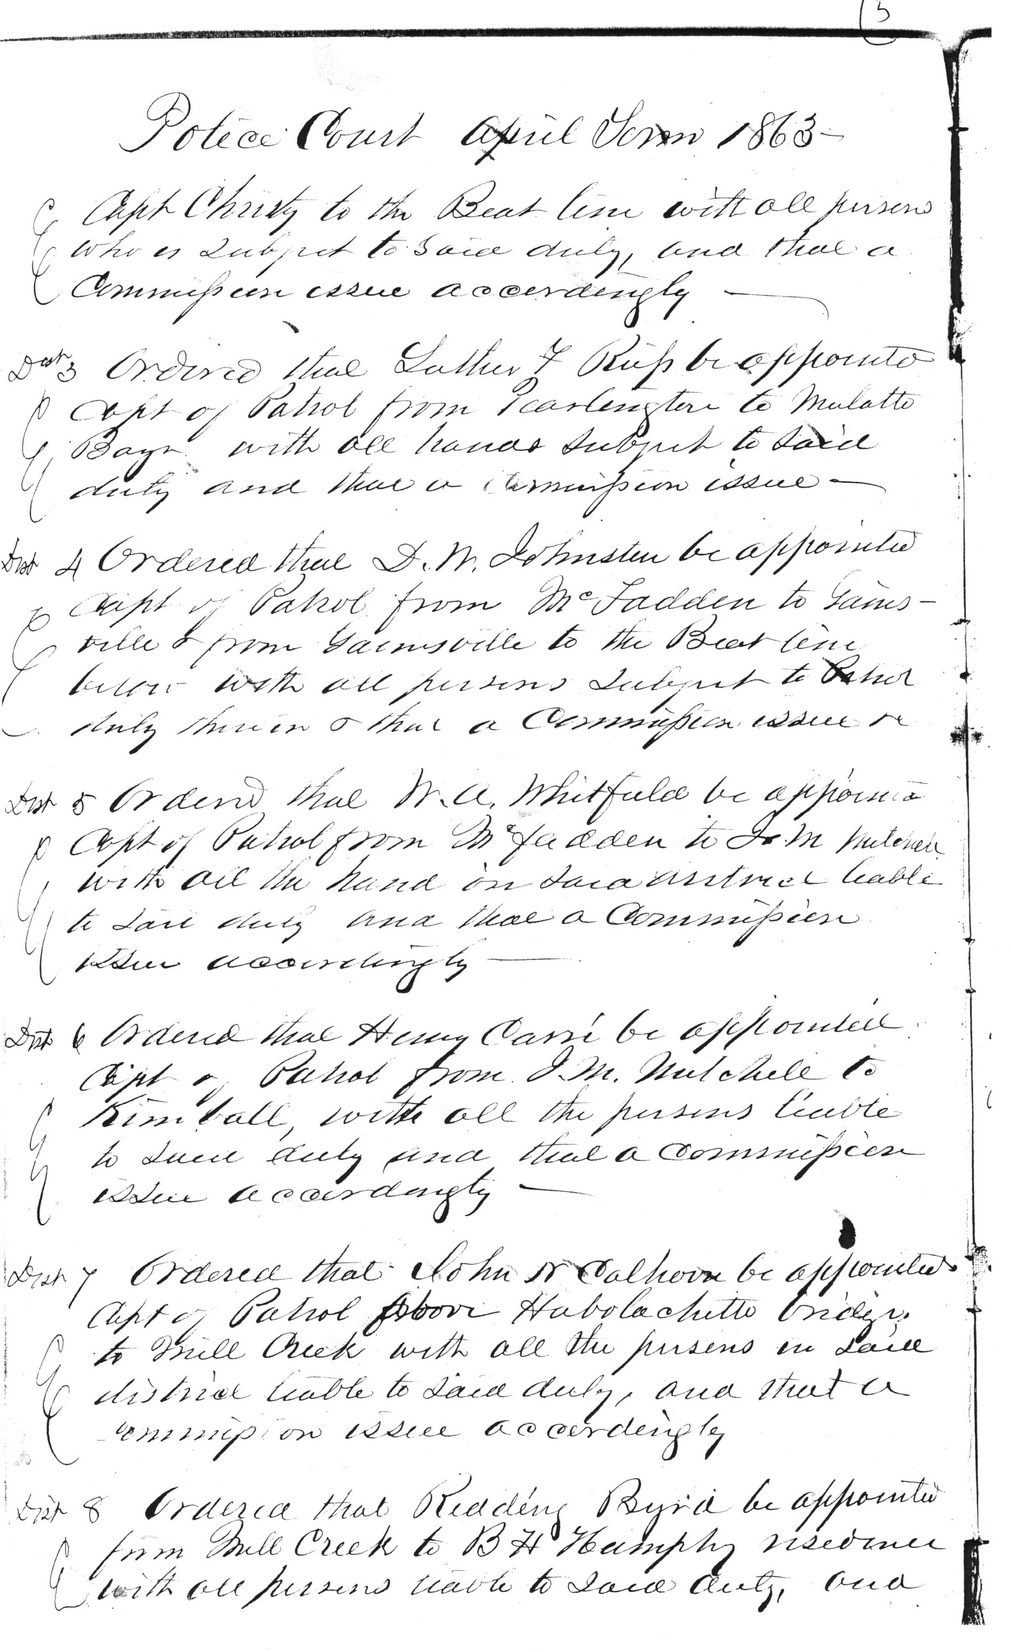 5
Police Court April Term 1863 -
Capt Christy to the Beat line with all persons
who is subject to said duty, and that a
Commission issue accordingly —
Dist 3 Ordered that Luther F Russ be appointed
Capt of Patrol from Pearlington to Mulatto
Bayu with all hands subject to said
duty and that a Commission issue —
Dist 4 Ordered that D. W. Johnston be appointed
Capt of Patrol from McFadden to Gains-
ville & from Gainsville to the Beat line
below with all persons subject to Patrol
duty therein & that a Commission issue &c
Dist 5 Ordered that W. A. Whitfield be appointed
Capt of Patrol from McFadden to J. M Mitchell
with all the hand in said district liable
to said duty and that a Commission
issue accordingly —
Dist 6 Ordered that Henry Carré be appointed
Capt of Patrol from J. M. Mitchell to
Kimball, with all the persons liable
to said duty and that a Commission
issue accordingly —
Dist 7 Ordered that John N Calhoun be appointed
Capt of Patrol above Habolachitto bridge
to Mill Creek with all the persons in said
district liable to said duty, and that a
Commission issue accordingly
Dist 8 Ordered that Redding Byrd be appointed
from Mill Creek to B H Humphy residence
with all persons liable to said duty, and